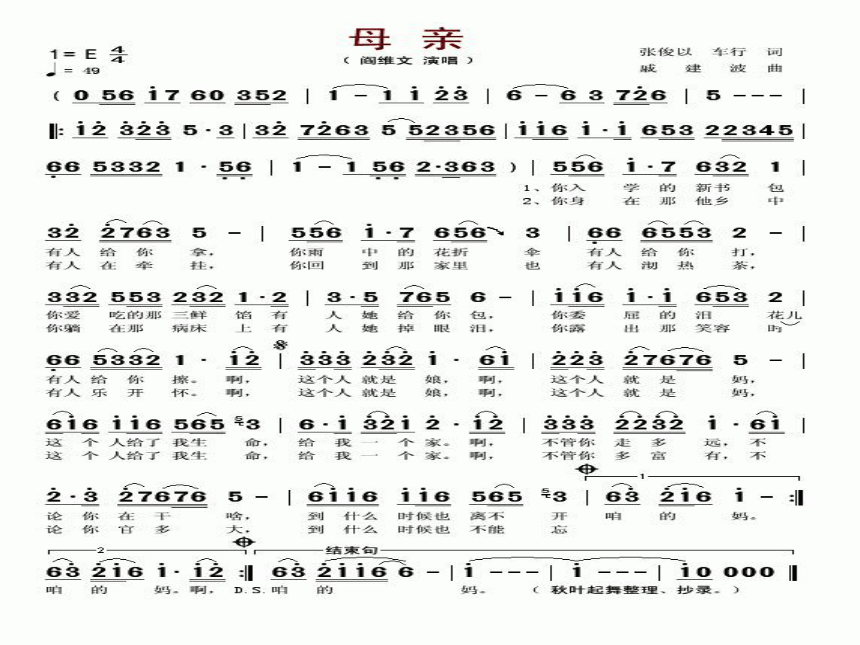 母 亲
1= E 4/4
( 阎维文 演唱 )
张俊以 车行 词
♩= 49
戚 建 波 曲
( 0 56 i7 60 352 | 1 - 1 i 23 | 6 - 6 3 726 | 5 - - - |
‖: i2 323 5 · 3 | 32 7263 5 52356 | i i6 i · i 653 22345 |
66 5332 1 · 56 | 1 - 1 56 2·363 ) | 556 i · 7 632 1 |
1、你入 学 的 新书 包
2、你身 在 那 他乡 中
32 2763 5 - | 556 i · 7 656 3 | 66 6553 2 - |
有人 给 你 拿， 你雨 中 的 花折 伞 有人 给 你 打，
有人 在 牵 挂， 你回 到 那 家里 也 有人 沏 热 茶，
332 553 232 1 · 2 | 3 · 5 765 6 - | i i6 i · i 653 2 |
你爱 吃的那 三鲜 馅 有 人 她 给 你 包， 你委 屈 的 泪 花儿
你躺 在那 病床 上 有 人 她 掉 眼 泪， 你露 出 那 笑容 时
66 5332 1 · i2 | 333 232 i · 6i | 223 27676 5 - |
有人 给 你 擦。 啊， 这个人 就是 娘， 啊， 这个人 就 是 妈，
有人 乐 开 怀。 啊， 这个人 就是 娘， 啊， 这个人 就 是 妈，
6i6 i i6 565 3 | 6 · i 32i 2 · i2 | 333 2232 i · 6i |
这 个 人给了 我生 命， 给 我 一 个 家。 啊， 不管你 走 多 远， 不
这 个 人给了 我生 命， 给 我 一 个 家。 啊， 不管你 多 富 有， 不
1
2 · 3 27676 5 - | 6i i6 i i6 565 3 | 63 2i6 i - :‖
论 你 在 干 啥， 到 什么 时候也 离不 开 咱 的 妈。
论 你 官 多 大， 到 什么 时候也 不能 忘
2 结束句
63 2i6 i · i2 :‖ 63 2i i6 6 - | i - - - | i - - - | i0 0 0 0 ‖
咱 的 妈。啊， D.S.咱 的 妈。 ( 秋叶起舞整理、抄录。)